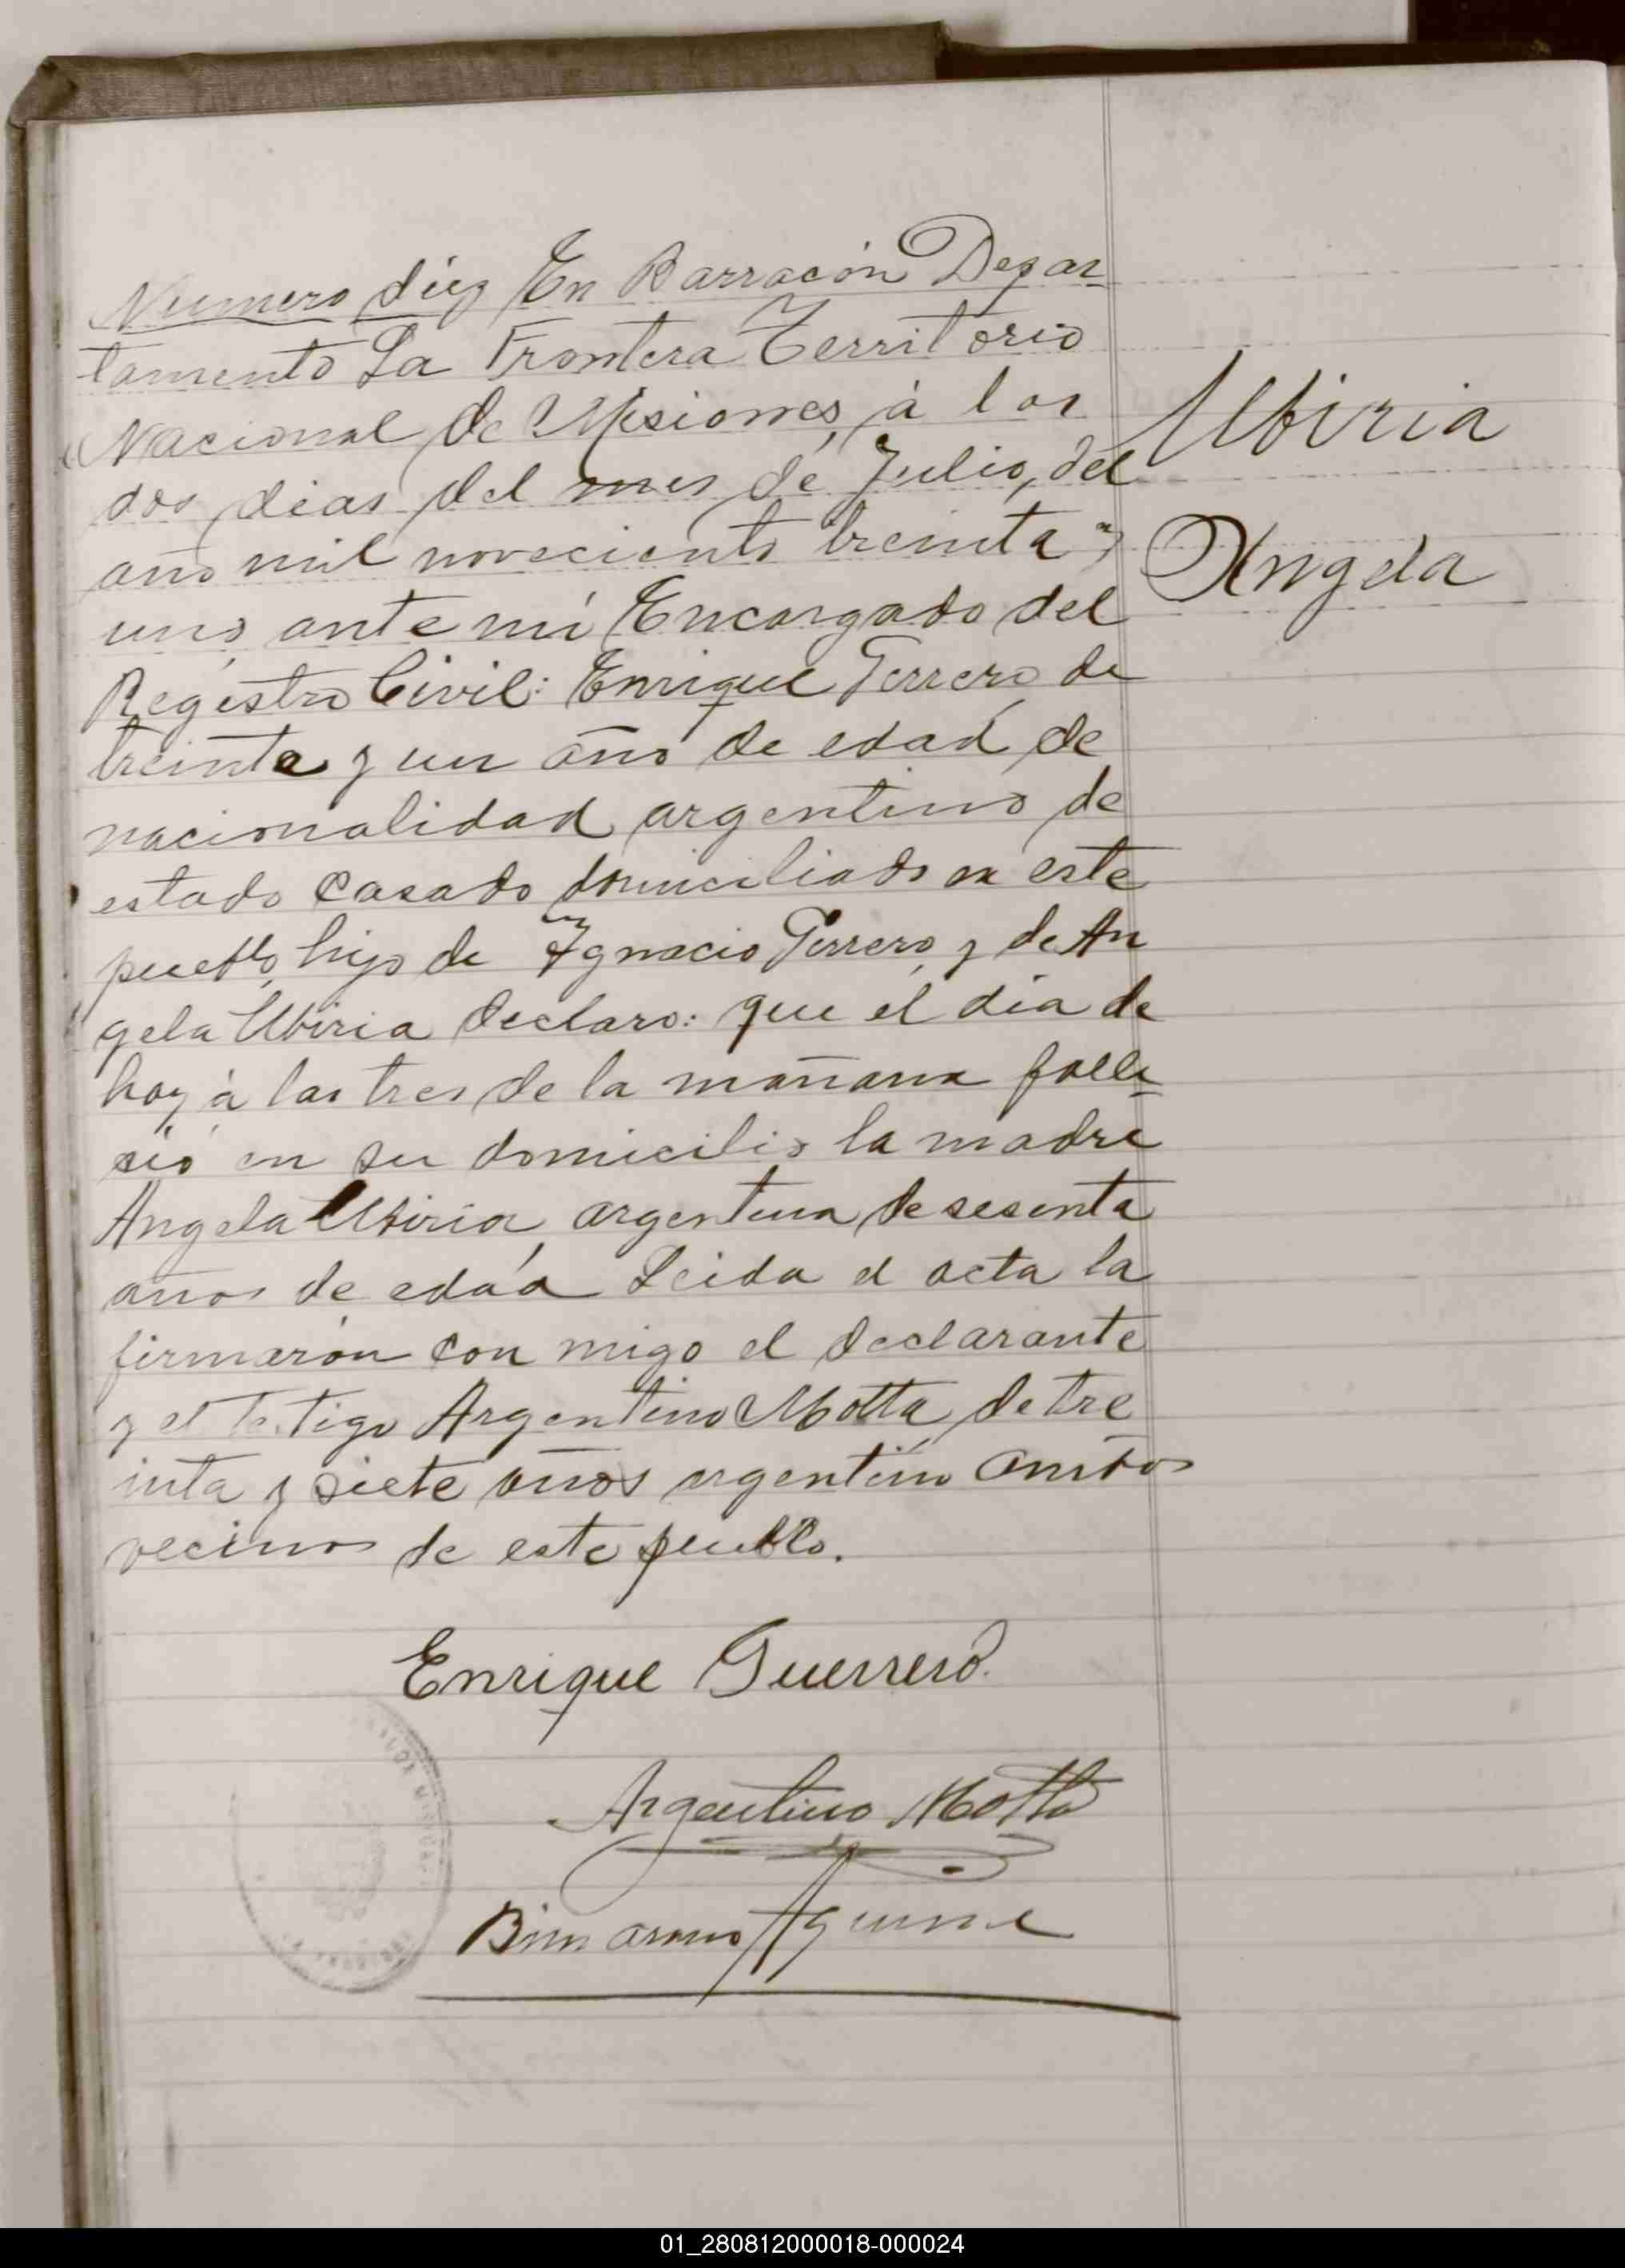 Numero diez En Barracón Depar
tamento La Frontera Territorio
Nacional de Misiones, à los
dos dias del mes de Julio, del
año mil noveciento treinta y
uno, ante mí Encargado del
Registro Civil: Enrique Gerrero, de
treinta y un año de edad de
nacionalidad argentino de
estado casado domiciliado en este
pueblo, hijo de Ygnacio Gerrero, y de An
gela Ubiria declaro: que el dia de
hoy à las tres de la mañana falle
sió en su domicilio la madre
Angela Ubiria, argentina de sesenta
años de edad Leida el acta la
firmarón con migo el declarante
y el testigo Argentino Motta, de tre
inta y siete años argentino ambos
vecinos de este pueblo.
Ubiria
Angela
Enrique Guerrero.
Argentino Motta
Aguirre
01_280812000018-000024